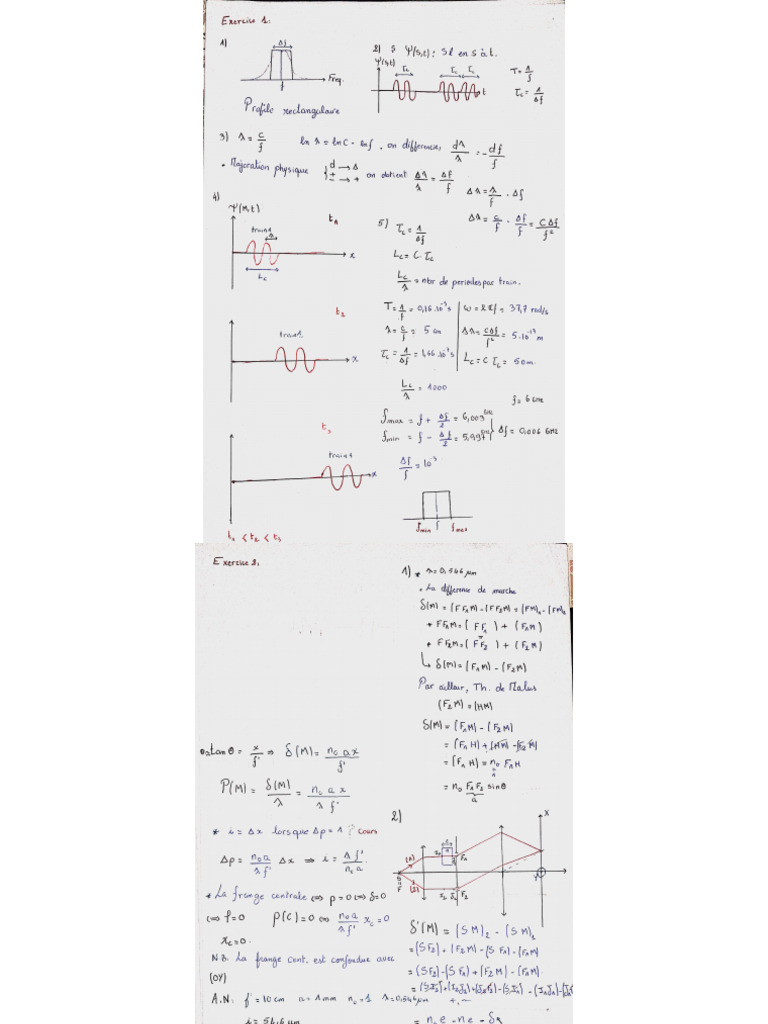 Exercise 1:
1)
Δf
f
Freq.
Profile rectangulaire
2) S Ψ(S,t): Sl en S à t.
Ψ(S,t)
τc τc τc
t
T = 1/f
τc = 1/Δf
3) λ = c/f ln λ = ln C - ln f, on differencie, dλ/λ = - df/f
• Majoration physique { d → Δ
± - → + on obtient Δλ/λ = Δf/f
Δλ = λ/f · Δf
Δλ = c/f · Δf/f = CΔf/f²
4)
Ψ(M,t)
t1
train 1
λ
x
Lc
t2
train 1
x
t3
train 1
x
t1 < t2 < t3
5) τc = 1/Δf
Lc = C·τc
Lc/λ = nbr de periodes par train.
T = 1/f = 0,16.10⁻⁹ s ω = 2πf = 37,7 rad/s
λ = c/f = 5 cm Δλ = cΔf/f² = 5.10⁻⁵ m
τc = 1/Δf = 1,66.10⁻⁷ s Lc = C τc = 50 m.
Lc/λ = 1000
f = 6 GHz
fmax = f + Δf/2 = 6,003 GHz
fmin = f - Δf/2 = 5,997 GHz } Δf = 0,006 GHz
Δf/f = 10⁻³
fmin f fmax
Exercise 2:
1) * λ = 0,546 µm
• La difference de marche
δ(M) = (FF1M) - (FF2M) = (FM)1 - (FM)2
+ FF1M = (FF1) + (F1M)
+ FF2M = (FF2) + (F2M)
↳ δ(M) = (F1M) - (F2M)
Par ailleur, Th. de Malus
(F2M) = (HM)
δ(M) = (F1M) - (F2M)
= (F1H) + (HM) - (F2M)
= (F1H) = n0 F1H
= n0 F1F2 sinθ
a
tanθ = x/f' ⇒ δ(M) = n0 a x/f'
P(M) = δ(M)/λ = n0 a x/λ f'
* i = Δx lorsque Δp = 1 ? Cours
Δp = n0 a/λf' Δx ⇒ i = λ f'/n0 a.
* La frange centrale ⇔ p = 0 ⇔ δ = 0
⇔ P = 0 P(C) = 0 ⇔ n0 a/λ f' xc = 0
xc = 0.
N.B. La frange cent. est confondue avec
(OY)
A.N: f' = 10 cm a = 1 mm n0 = 1 λ = 0,546 µm
i = 54,6 µm
2)
X
(1)
e
F1
(2)
F2
δ'(M) = (SM)2 - (SM)1
= (SF2) + (F2M) - (SF1) - (F1M)
= (SF2) - (SF1) + (F2M) - (F1M)